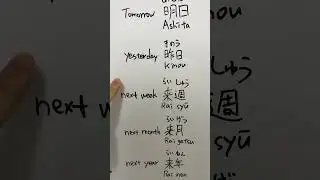 Tomorrow 明日
Ashita
きのう
yesterday 昨日
Kinou
らい しゅう
next week 来週
Rai syū
らい げつ
next month 来月
Rai getsu
らい ねん
next year 来年
Rai nen
しゅう
週
syū